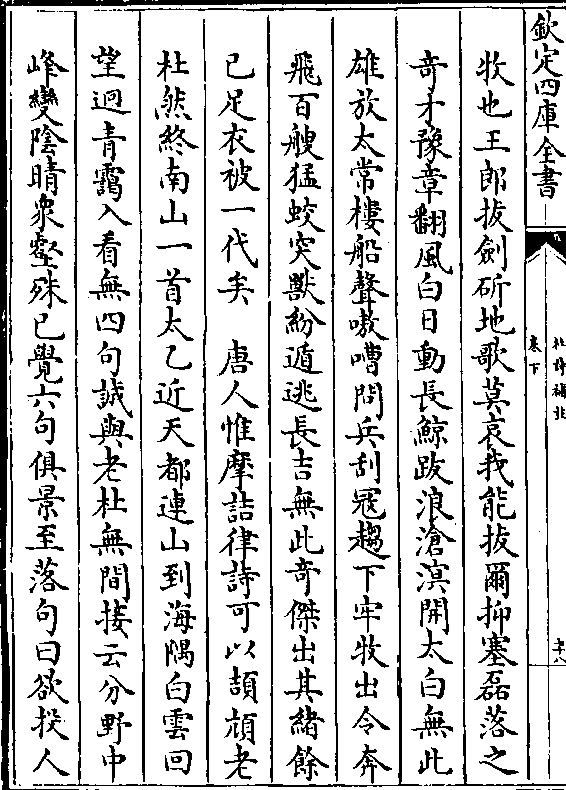 欽定四庫全書
杜詩攟
卷下
牧也王郎㧞劍斫地歌莫哀我能㧞爾抑塞磊落之
奇才豫章翻風白日動長鯨跋浪滄溟開太白無此
雄放太常樓船聲嗷嘈問兵刮冦趨下牢牧出令奔
飛百艘猛蛟突獸紛遁逃長吉無此奇傑出其緒餘
已足衣被一代矣　唐人惟摩詰律詩可以頡頏老
杜然終南山一首太乙近天都連山到海隅白雲回
望迥青靄入看無四句誠與老杜無間接云分野中
峰變陰晴衆壑殊已覺六句俱景至落句曰欲投人